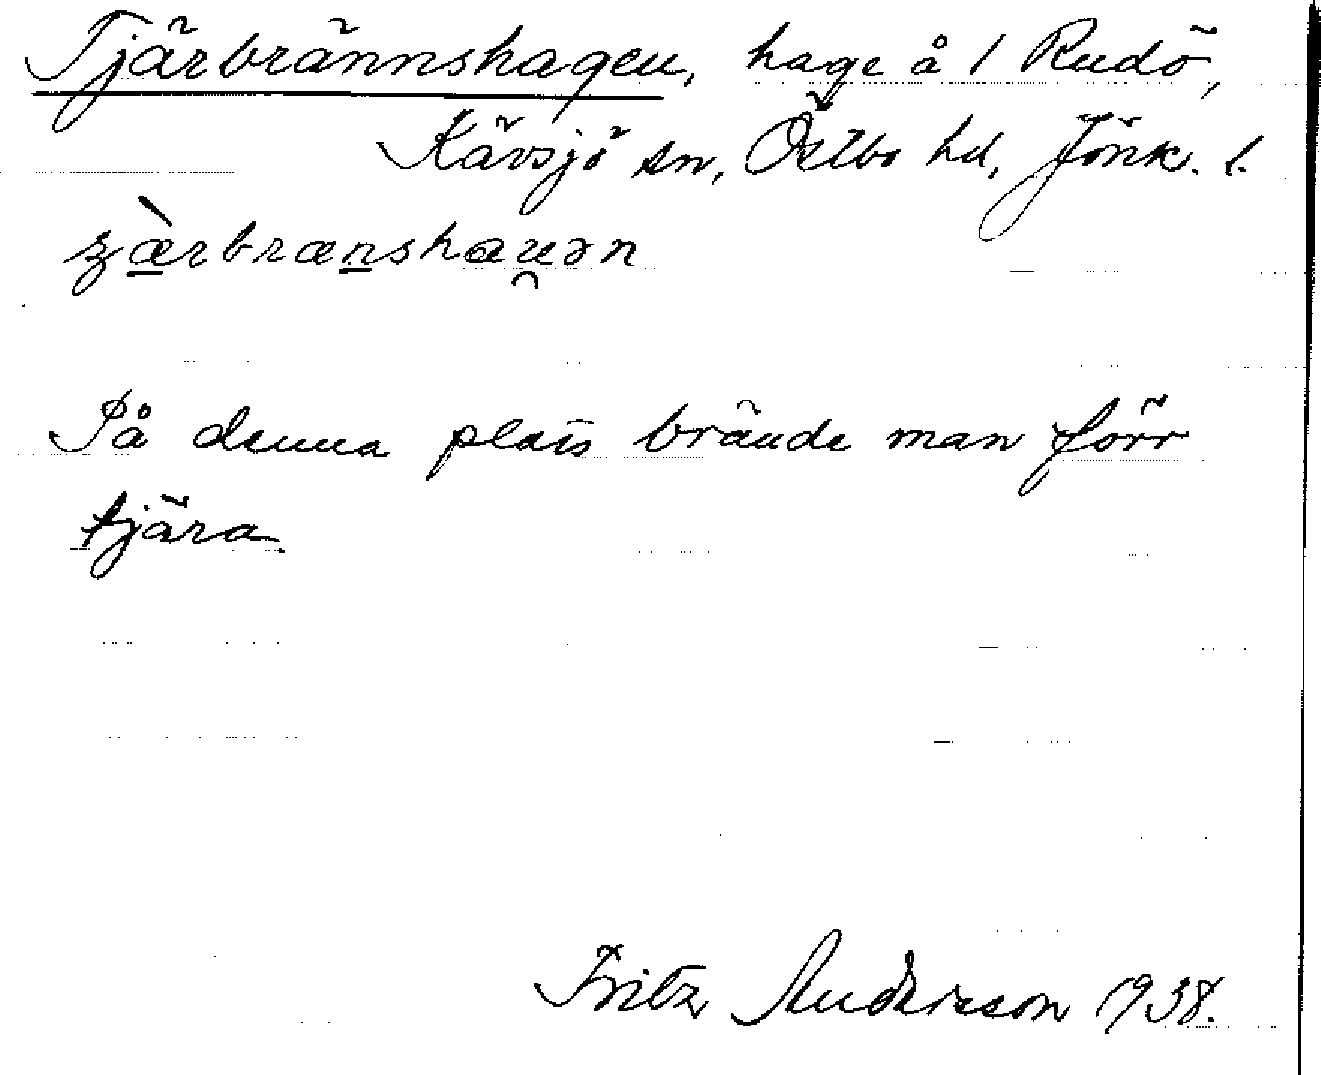 Tjärbrännshagen, hage å 1 Rudö,
Kävsjö sn, Östbo hd, Jönk. l.
På denna plats brände man förr
tjära
Fritz Andersson 1938.